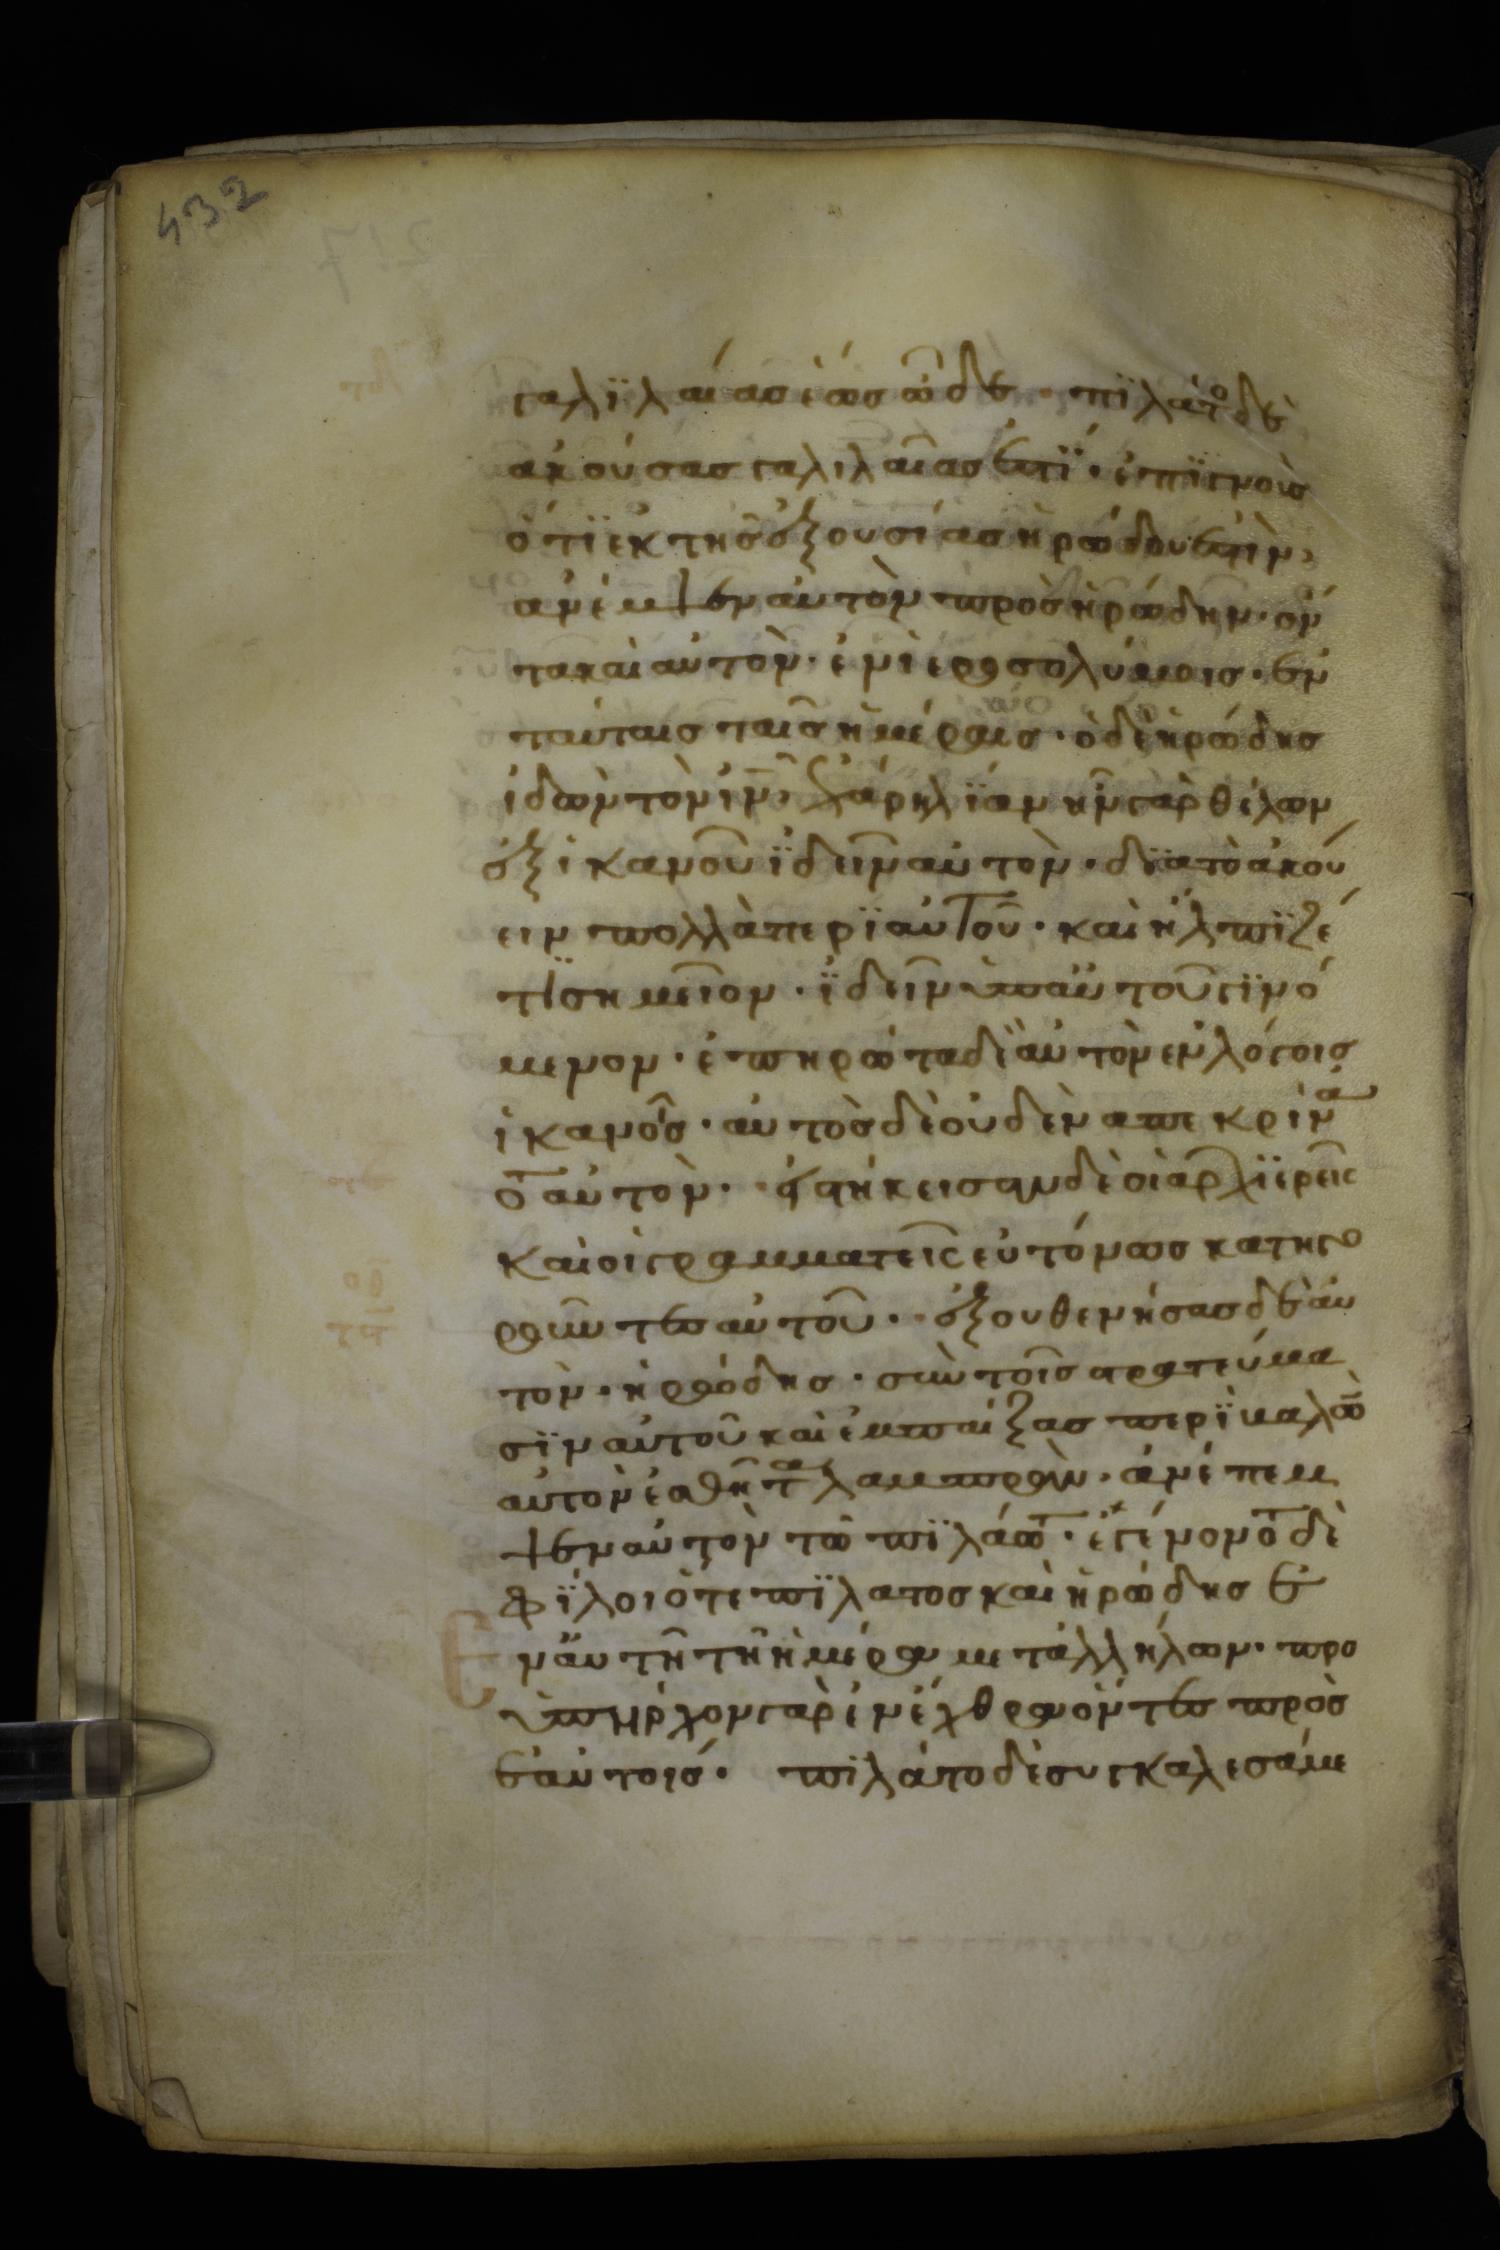 432
γαλϊλαίας ἑώς ὧδε · πϊλάτο δὲ
ακούσας γαλιλαῖας ἐστϊ · ἐπϊγνοὺς
ὅτϊ ἐκ τῆς ἐξουσίας ἡρώδου ἐστὶν,
ἀνέμψεν ἀυτὸν πρὸς ἡρώδην · ὄν
τα καὶ αὐτὸν · ἐν ἱεροσολύμοις · ἐν
ταύταις ταῖς ἡμέραις · ὁ δὲ ἡρώδης
ἰδὼν τὸν ἰν̅, ἐχάρη λϊάν ἦν γὰρ θέλων
ἐξ ἱκανοῦ ϊδεῖν αὐτὸν · δϊα τὸ ἀκού
ειν πολλὰ περϊ αὐτοῦ · καὶ ἤλπϊζέ
τϊ σημεῖον · ϊδεῖν ὑπ αὐτοῦ γϊνό
μενον · ἐπηρώτα δὲ ἀυτὸν εν λόγοις
ἱκανοῖς · αυτὸς δὲ οὐδὲν απεκρίνα
το αὐτὸν · εἱστήκεισαν δὲ οἱ ἀρχϊερεῖς
καὶ οἱ γραμματεῖς εὐτόνως κατηγο
ροῦντες αὐτοῦ · ἐξουθενήσας δὲ ἀυ
τὸν · ἡρώδης · σὺν τοῖς στρατεύμα
σϊν αὐτοῦ καὶ ἐμπαίξας περϊβαλὼν
αὐτὸν ἐσθῆτα λαμπρὰν · ἀνέπεμ
ψεν αὐτὸν τῶ πϊλάτω · ἐγένοντο δὲ
φϊλοι ὅτε πϊλατος καὶ ἡρώδης ἐ
ν ἀυτῆ τῆ ἡμέρα μετ ἀλλήλων · προ
ὑπῆρχον γὰρ ἐν ἔχθρα ὄντες πρὸς
ἑαὐτοις · πϊλάτο δὲ συγκαλεσάμε